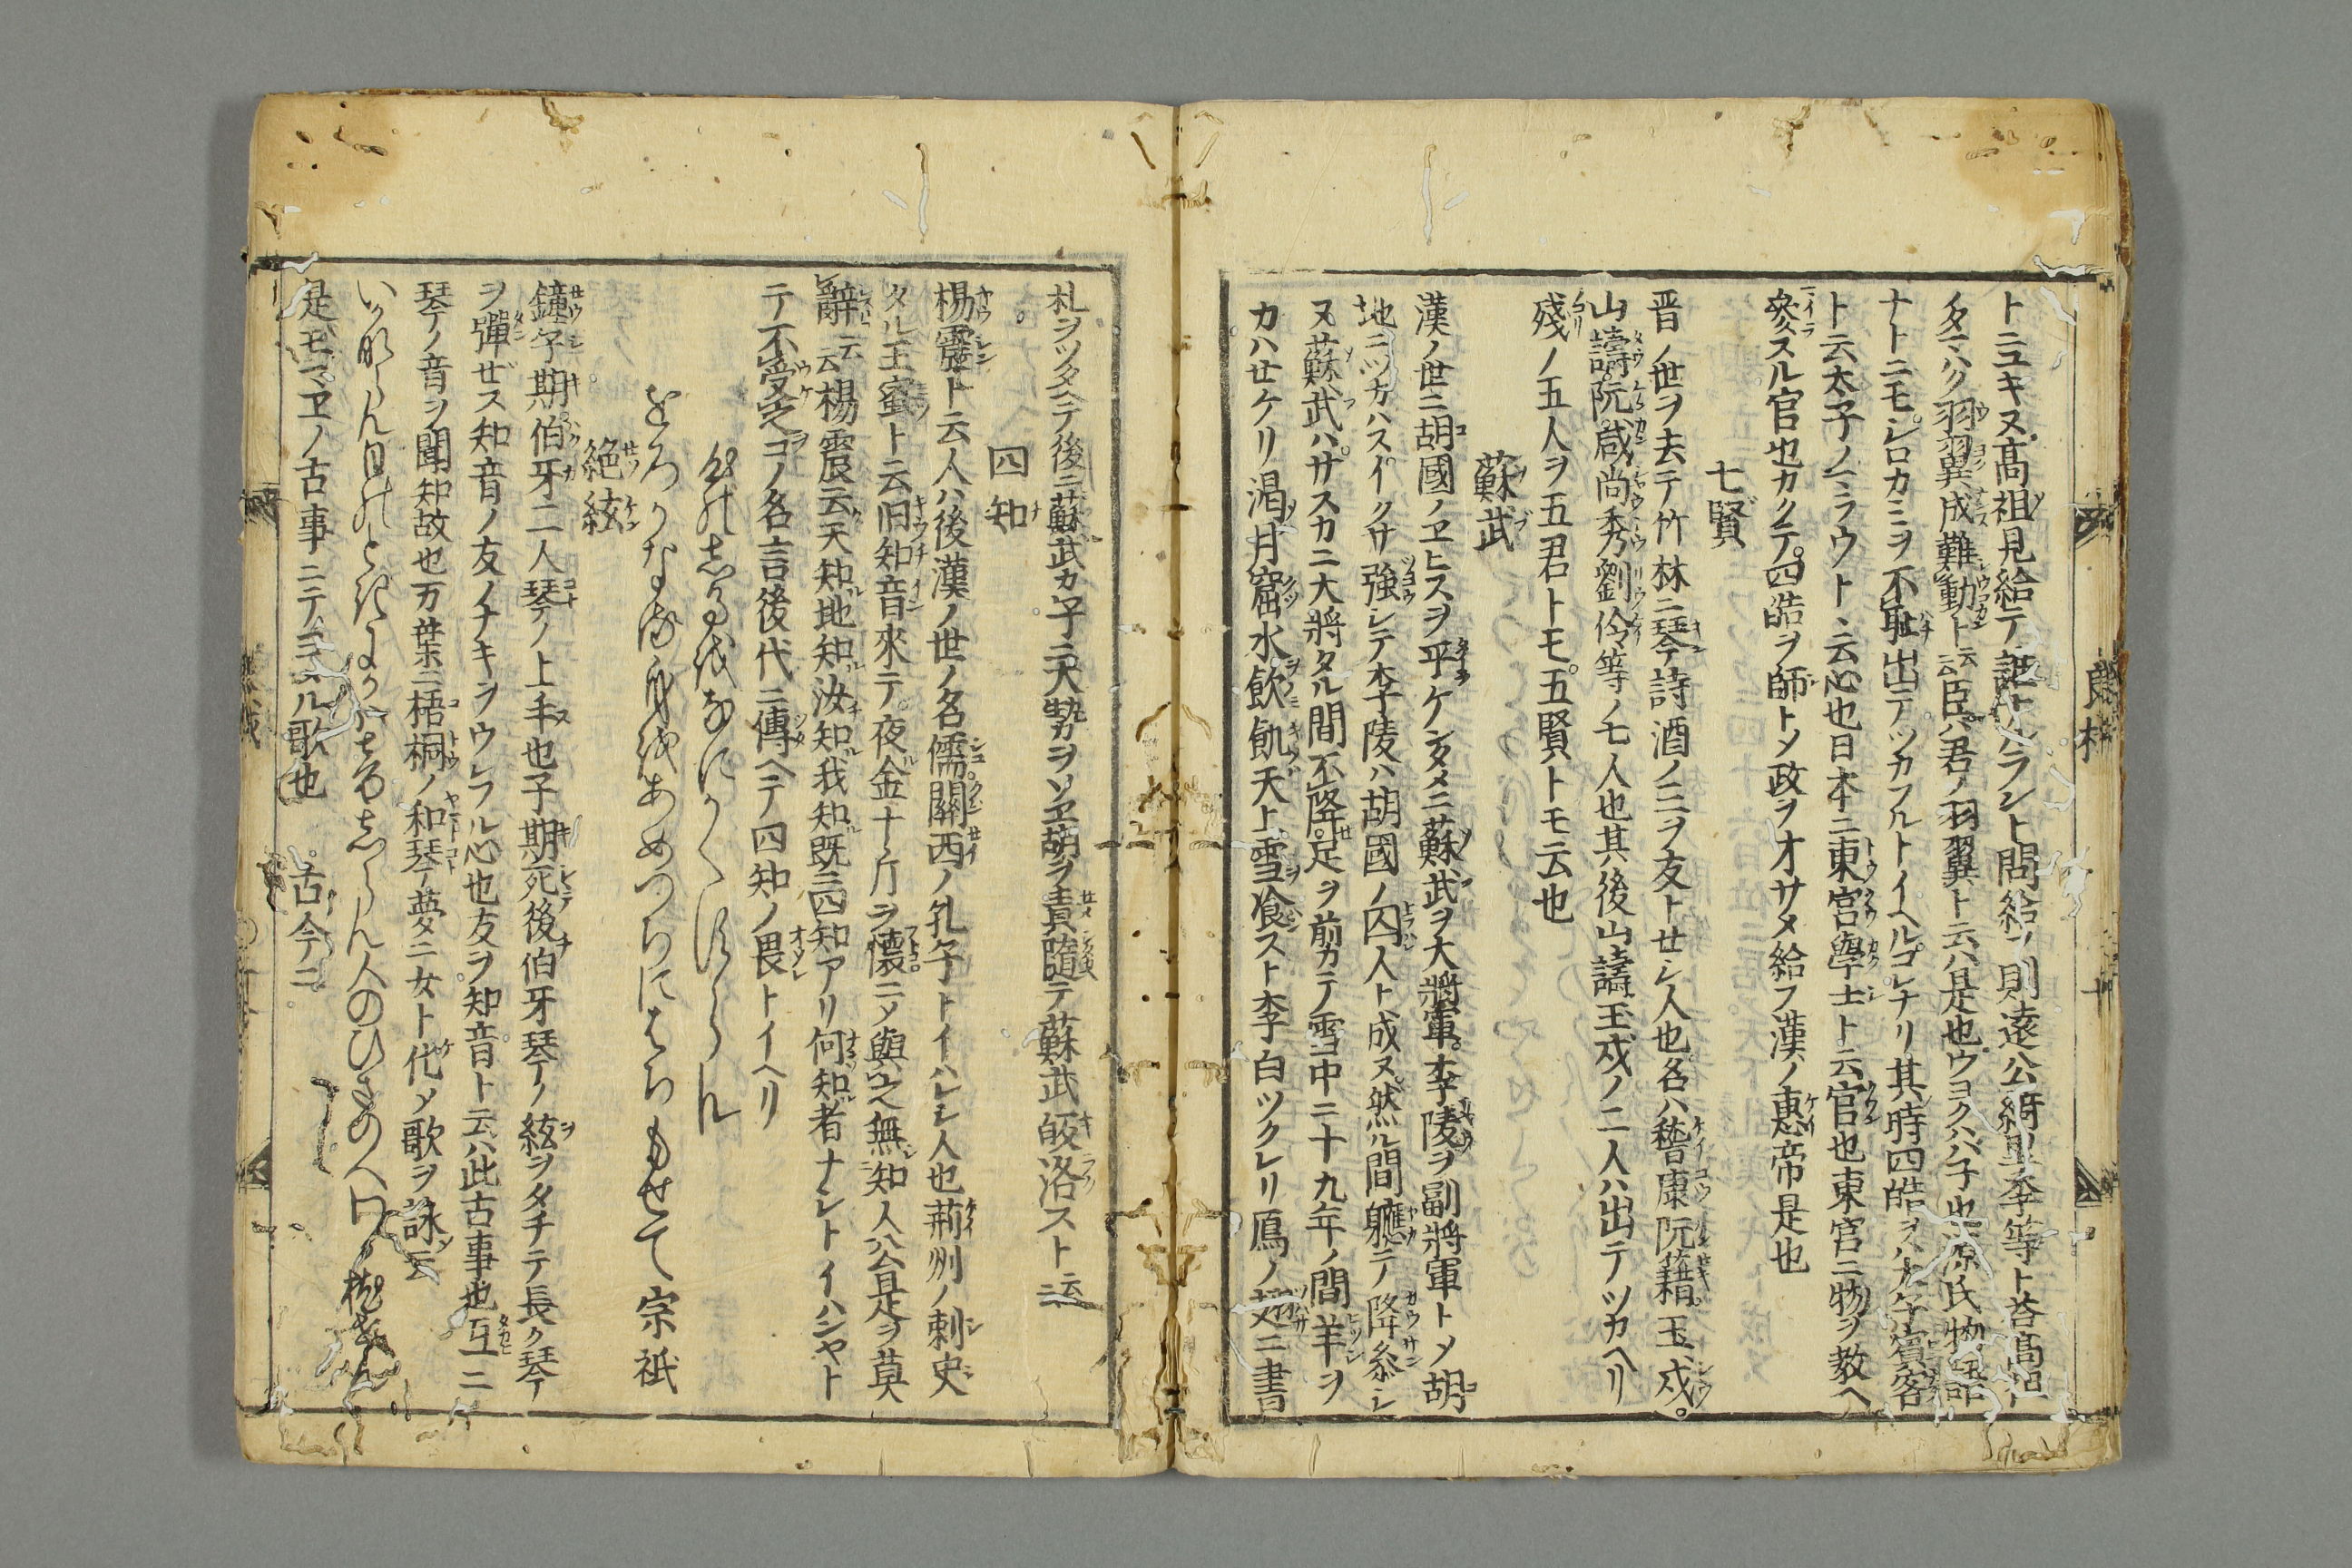 トニユキヌ高祖見給テ誰トハラント問給フ則遠公綺里季等ト答高祖
タマハク羽翼成難動ト云臣ハ君ノ羽翼ト云ハ是也ウヨクハ子也源氏物語
ナトニモシロカミヲ不恥出テツカフルトイヘルコレナリ其時四皓ヲハ太子賓客
ト云太子ノマラウトヽ云心也日本ニ東宮學士ト云官也東宮ニ物ヲ教ヘ
參スル官也カクテ四皓ヲ師トメ政ヲオサメ給フ漢ノ惠帝是也
七賢
晋ノ世ヲ去テ竹林ニ琴詩酒ノ三ヲ友トせシ人也名ハ嵆康阮籍王戎
山濤阮咸尚秀劉伶等ノ七人也其後山濤王戎ノ二人ハ出テツカヘリ
殘ノ五人ヲ五君トモ五賢トモ云也
蘇武
漢ノ世ニ胡國ノヱヒスヲ平ケンタメニ蘇武ヲ大將軍李陵ヲ副將軍トメ胡
地ニツカハスイクサ強シテ李陵ハ胡國ノ囚人ト成ヌ然ル間軈テ降參シ
ヌ蘇武ハサスカニ大將タル間不降足ヲ前カテ雪中ニ十九年ノ間羊ヲ
カハせケリ渇月窟水飲飢天上雪飡スト李白ツクレリ鴈ノ翅ニ書
札ヲツタヘテ後ニ蘇武カ子ニ大勢ヲソヱ胡ヲ責隨テ蘇武皈洛スト云〻
四知
楊震ト云人ハ後漢ノ世ノ名儒關西ノ孔子トイハレシ人也荊州ノ刺史
タル王蜜ト云旧知音來テ夜金十斤ヲ懐ニメ與之無知人公是ヲ莫
辭云云楊震云天知地知汝知我知既ニ四知アリ何知者ナシトイハシヤト
テ不受之コノ名言後代ニ傳ヘテ四知ノ畏トイヘリ
をろかなる身をあめつちにはちもせて 宗祇
絶絃
鐘子期伯牙二人琴ノ上手也子期死後伯牙琴ノ絃ヲタチテ長ク琴
ヲ彈せス知音ノ友ノナキヲウレフル心也友ヲ知音ト云ハ此古事也互ニ
琴ノ音ヲ聞知故也万葉ニ梧桐ノ和琴夢ニ女ト化メ歌ヲ詠云
いかならん日のときにかも声しらん人のひさのへワか枕せん
是モマヱノ古事ニテヨメル歌也 古今ニ